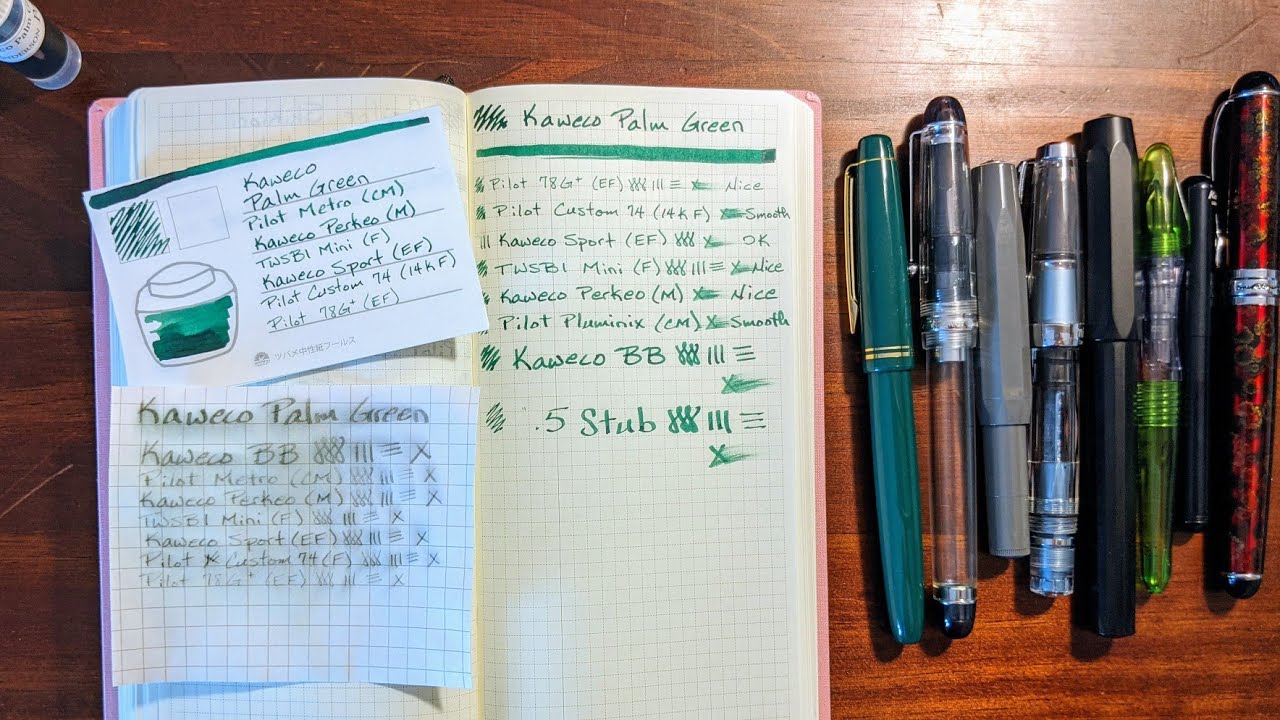 Kaweco
Palm Green
Pilot Metro (CM)
Kaweco Perkeo (M)
TWSBI Mini (F)
Kaweco Sport (EF)
Pilot Custom 74 (14k F)
Pilot 78G+ (EF)
ツバメ中性紙フールス
Kaweco Palm Green
Kaweco BB X
Pilot Metro (CM) X
Kaweco Perkeo (M) X
TWSBI Mini (F) X
Kaweco Sport (EF) X
Pilot Custom 74 (F) X
Pilot 78G+ (EF) X
Kaweco Palm Green
Pilot 78G+ (EF) X Nice
Pilot Custom 74 (14k F) X Smooth
Kaweco Sport (EF) X OK
TWSBI Mini (F) X Nice
Kaweco Perkeo (M) X Nice
Pilot Pluminix (CM) X Smooth
Kaweco BB
X
.5 Stub
X